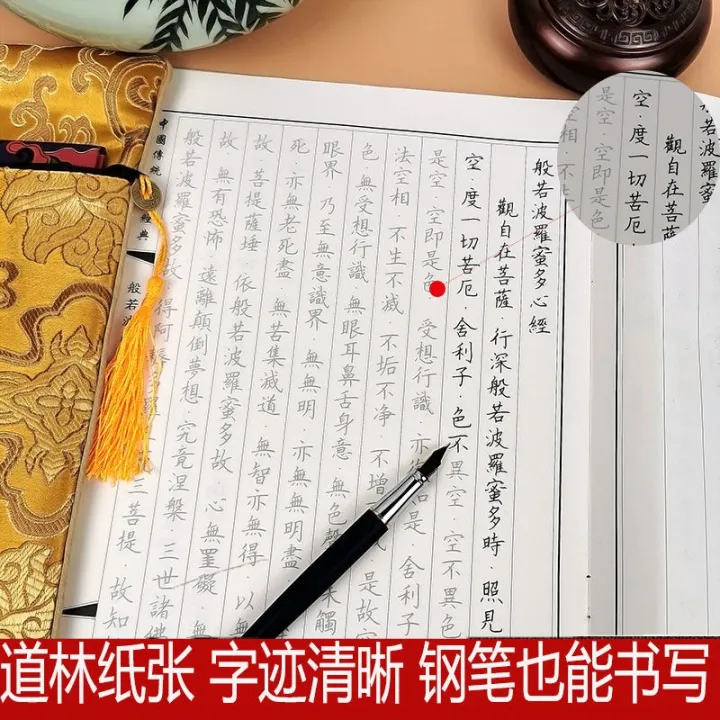 般若波羅蜜多心經
觀自在菩薩·行深般若波羅蜜多時·照見
空·度一切苦厄·舍利子·色不異空·空不異色
是空·空即是色·受想行識·亦如是·舍利子
法空相·不生不滅·不垢不净·不增是故空
色·無受想行識·無眼耳鼻舌身意·無色聲觸
眼界·乃至無意識界·無無明·亦無無明盡
死·亦無老死盡·無苦集滅道·無智亦無得·以
故·菩提薩埵·依般若波羅蜜多故·心無罣礙
故·無有恐怖·遠離顛倒夢想·究竟涅槃·三世諸佛
般若波羅蜜多故·得阿三菩提·故知
中國傳統經典
般若
若波羅蜜
觀自在菩薩
空·度一切苦厄
是空·空即是色
相·不
道林纸张 字迹清晰 钢笔也能书写